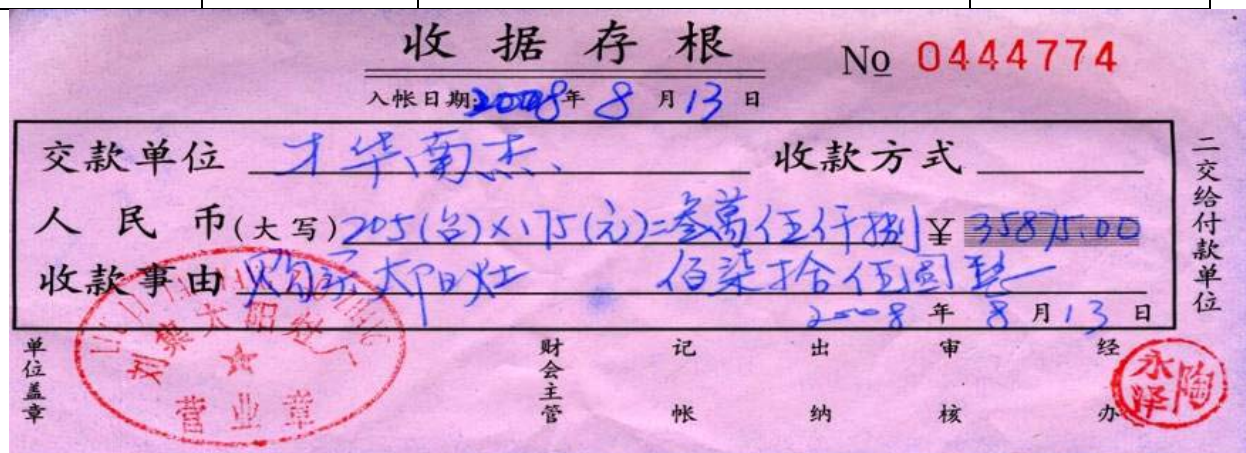 收据存根
No 0444774
入帐日期:2008年8月13日
交款单位 才华南杰、 收款方式
人民币(大写)205(台)×175(元)=叁萬伍仟捌 ¥35875.00
收款事由 购买太阳灶 佰柒拾伍圆整
2008年8月13日
二交给付款单位
单位盖章 财会主管 记帐 出纳 审核 经办
太阳灶厂
营业章
永泽 陶